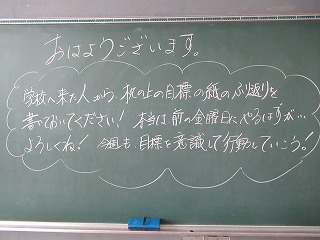 おはようございます。
学校へ来た人から、机の上の目標の紙のふり返りを
書いておいてください！本当は前の金曜日にやるはずが…
よろしくね！今週も、目標を意識して行動していこう！